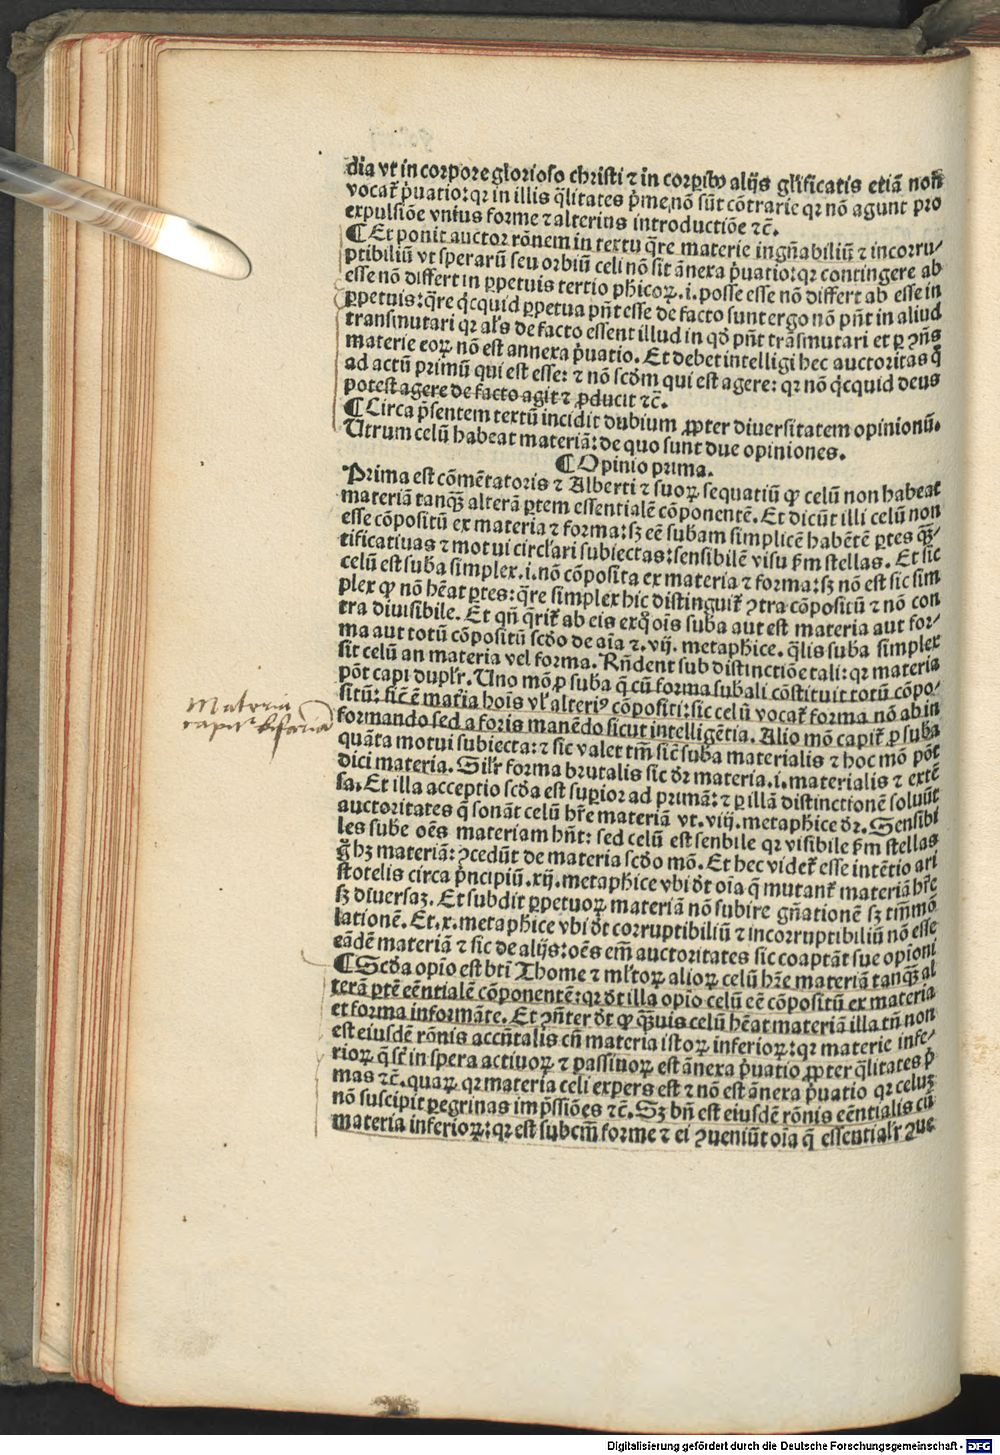 dia vt in corpore glorioso christi ⁊ in corꝑibꝰ alijs glīficatis etiā non
vocat᷑ p̄uatio: qr in illis q̄litates p̄me nō sūt cōtrarie qr nō agunt pro
expulsiōe vnius forme ⁊ alterius introductiōe ⁊c̄.
¶ Et ponit auctor rōnem in textu q̄re materie ingn̄abiliū ⁊ incorru-
ptibiliū vt sperarū seu orbiū celi nō sit ānexa p̄uatio: qr contingere ab
esse nō differt in ꝑpetuis tertio ph̄icoꝝ .i. posse esse nō differt ab esse in
ꝑpetuis: q̄re q̄cquid ꝑpetua pn̄t esse de facto sunt ergo nō pn̄t in aliud
transmutari qr al's de facto essent illud in qd̄ pn̄t trāsmutari et ꝑ ꝯn̄s
materie eoꝝ nō est annexa p̄uatio. Et debet intelligi hec auctoritas q̄
ad actū primū qui est esse: ⁊ nō scd̄m qui est agere: qr nō q̄cquid deus
potest agere de facto agit ⁊ ꝓducit ⁊c̄.
¶ Circa p̄sentem textū incidit dubium ꝓpter diuersitatem opinionū.
Utrum celū habeat materiā: de quo sunt due opiniones.
¶ Opinio prima.
Prima est cōmētatoris ⁊ Alberti ⁊ suoꝝ sequatiū ꝙ celū non habeat
materiā tanq̄ꝫ alterā ꝑtem essentialē cōponentē. Et dicūt illi celū non
esse cōpositū ex materia ⁊ forma: sꝫ eē subam simplicē habētē ꝑtes q̄ꝫ-
tificatiuas ⁊ motui circl'ari subiectas: sensibilē visu ẜm stellas. Et sic
celū est suba simplex .i. nō cōposita ex materia ⁊ forma: sꝫ nō est sic sim
plex ꝙ nō hēat ꝑtes: q̄re simplex hic distinguit᷑ ꝯtra cōpositū ⁊ nō con
tra diuisibile. Et qn̄ q̄rit᷑ ab eis ex quo oīs suba aut est materia aut for-
ma aut totū cōpositū scd̄o de aīa ⁊ .vij. metaph̄ice. q̄lis suba simplex
sit celū an materia vel forma. Rn̄dent sub distinctiōe tali: qr materia
pōt capi dupl'r. Uno mō ꝓ suba q̄ cū forma subali cōstituit totū cōpo-
sitū: sic ē mat'ia hoīs vl' alteriꝰ cōpositi: sic celū vocat᷑ forma nō ab in
formando sed a foris manēdo sicut intelligētia. Alio mō capit᷑ ꝓ suba
quāta motui subiecta: ⁊ sic valet tm̄ sic̄ suba materialis ⁊ hoc mō pōt
dici materia. Sil'r forma brutalis sic dr̄ materia .i. materialis ⁊ extē
sa. Et illa acceptio scd̄a est supior ad primā: ⁊ ꝑ illā distinctionē soluūt
auctoritates q̄ sonāt celū hr̄e materiā vt .viij. metaph̄ice dr̄. Sensibi
les sube oēs materiam hn̄t: sed celū est senbile qr visibile ẜm stellas
g̊ hꝫ materiā: ꝯcedūt de materia scd̄o mō. Et hec videt᷑ esse intētio ari
stotelis circa p̄ncipiū .xij. metaph̄ice vbi dt̄ oīa q̄ mutant᷑ materiā hr̄e
sꝫ diuersaꝫ. Et subdit ꝑpetuoꝝ materiā nō subire gn̄ationē sꝫ tm̄mō
lationē. Et .x. metaph̄ice vbi dt̄ corruptibiliū ⁊ incorruptibiliū nō esse
eādē materiā ⁊ sic de alijs: oēs em̄ auctoritates sic coaptāt sue opīoni
¶ Scd̄a opīo est bt̄i Thome ⁊ ml'toꝝ alioꝝ celū hr̄e materiā tanq̄ꝫ al
terā ꝑtē eēntialē cōponentē: qr dt̄ illa opīo celū eē cōpositū ex materia
et forma informāte. Et ꝯn̄ter dt̄ ꝙ q̄ꝫuis celū hēat materiā illa tn̄ non
est eiusdē rōnis accn̄talis cū materia istoꝝ inferioꝝ: qr materie infe-
rioꝝ q̄ sūt in spera actiuoꝝ ⁊ passiuoꝝ est ānexa p̄uatio ꝓpter q̄litates p̄
mas ⁊c̄. quaꝝ qr materia celi expers est ⁊ nō est ānexa p̄uatio qr celuꝫ
nō suscipit ꝑegrinas imp̄ssiōes ⁊c̄. Sꝫ bn̄ est eiusdē rōnis eēntialis cū
materia inferioꝝ: qr est subcm̄ forme ⁊ ei ꝯueniūt oīa q̄ essential'r ꝯue
Materia
capit᷑ bifariā
Digitalisierung gefördert durch die Deutsche Forschungsgemeinschaft - DFG